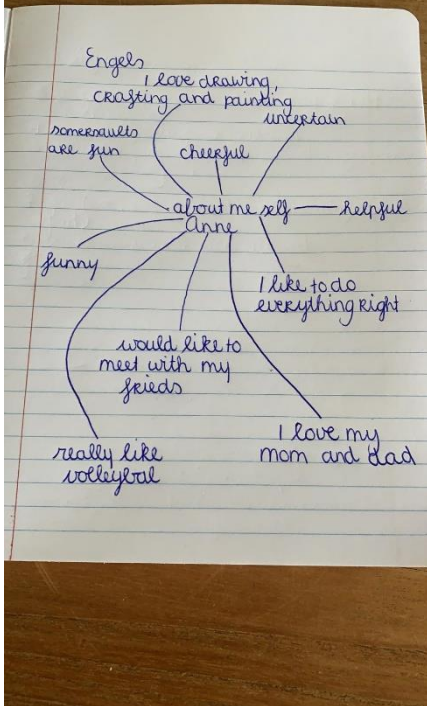 Engels
I love drawing,
crafting and painting
uncertain
somersaults
are fun
cheerful
about me self
helpful
Anne
funny
I like to do
everything right
would like to
meet with my
frieds
I love my
mom and dad
really like
volleybal